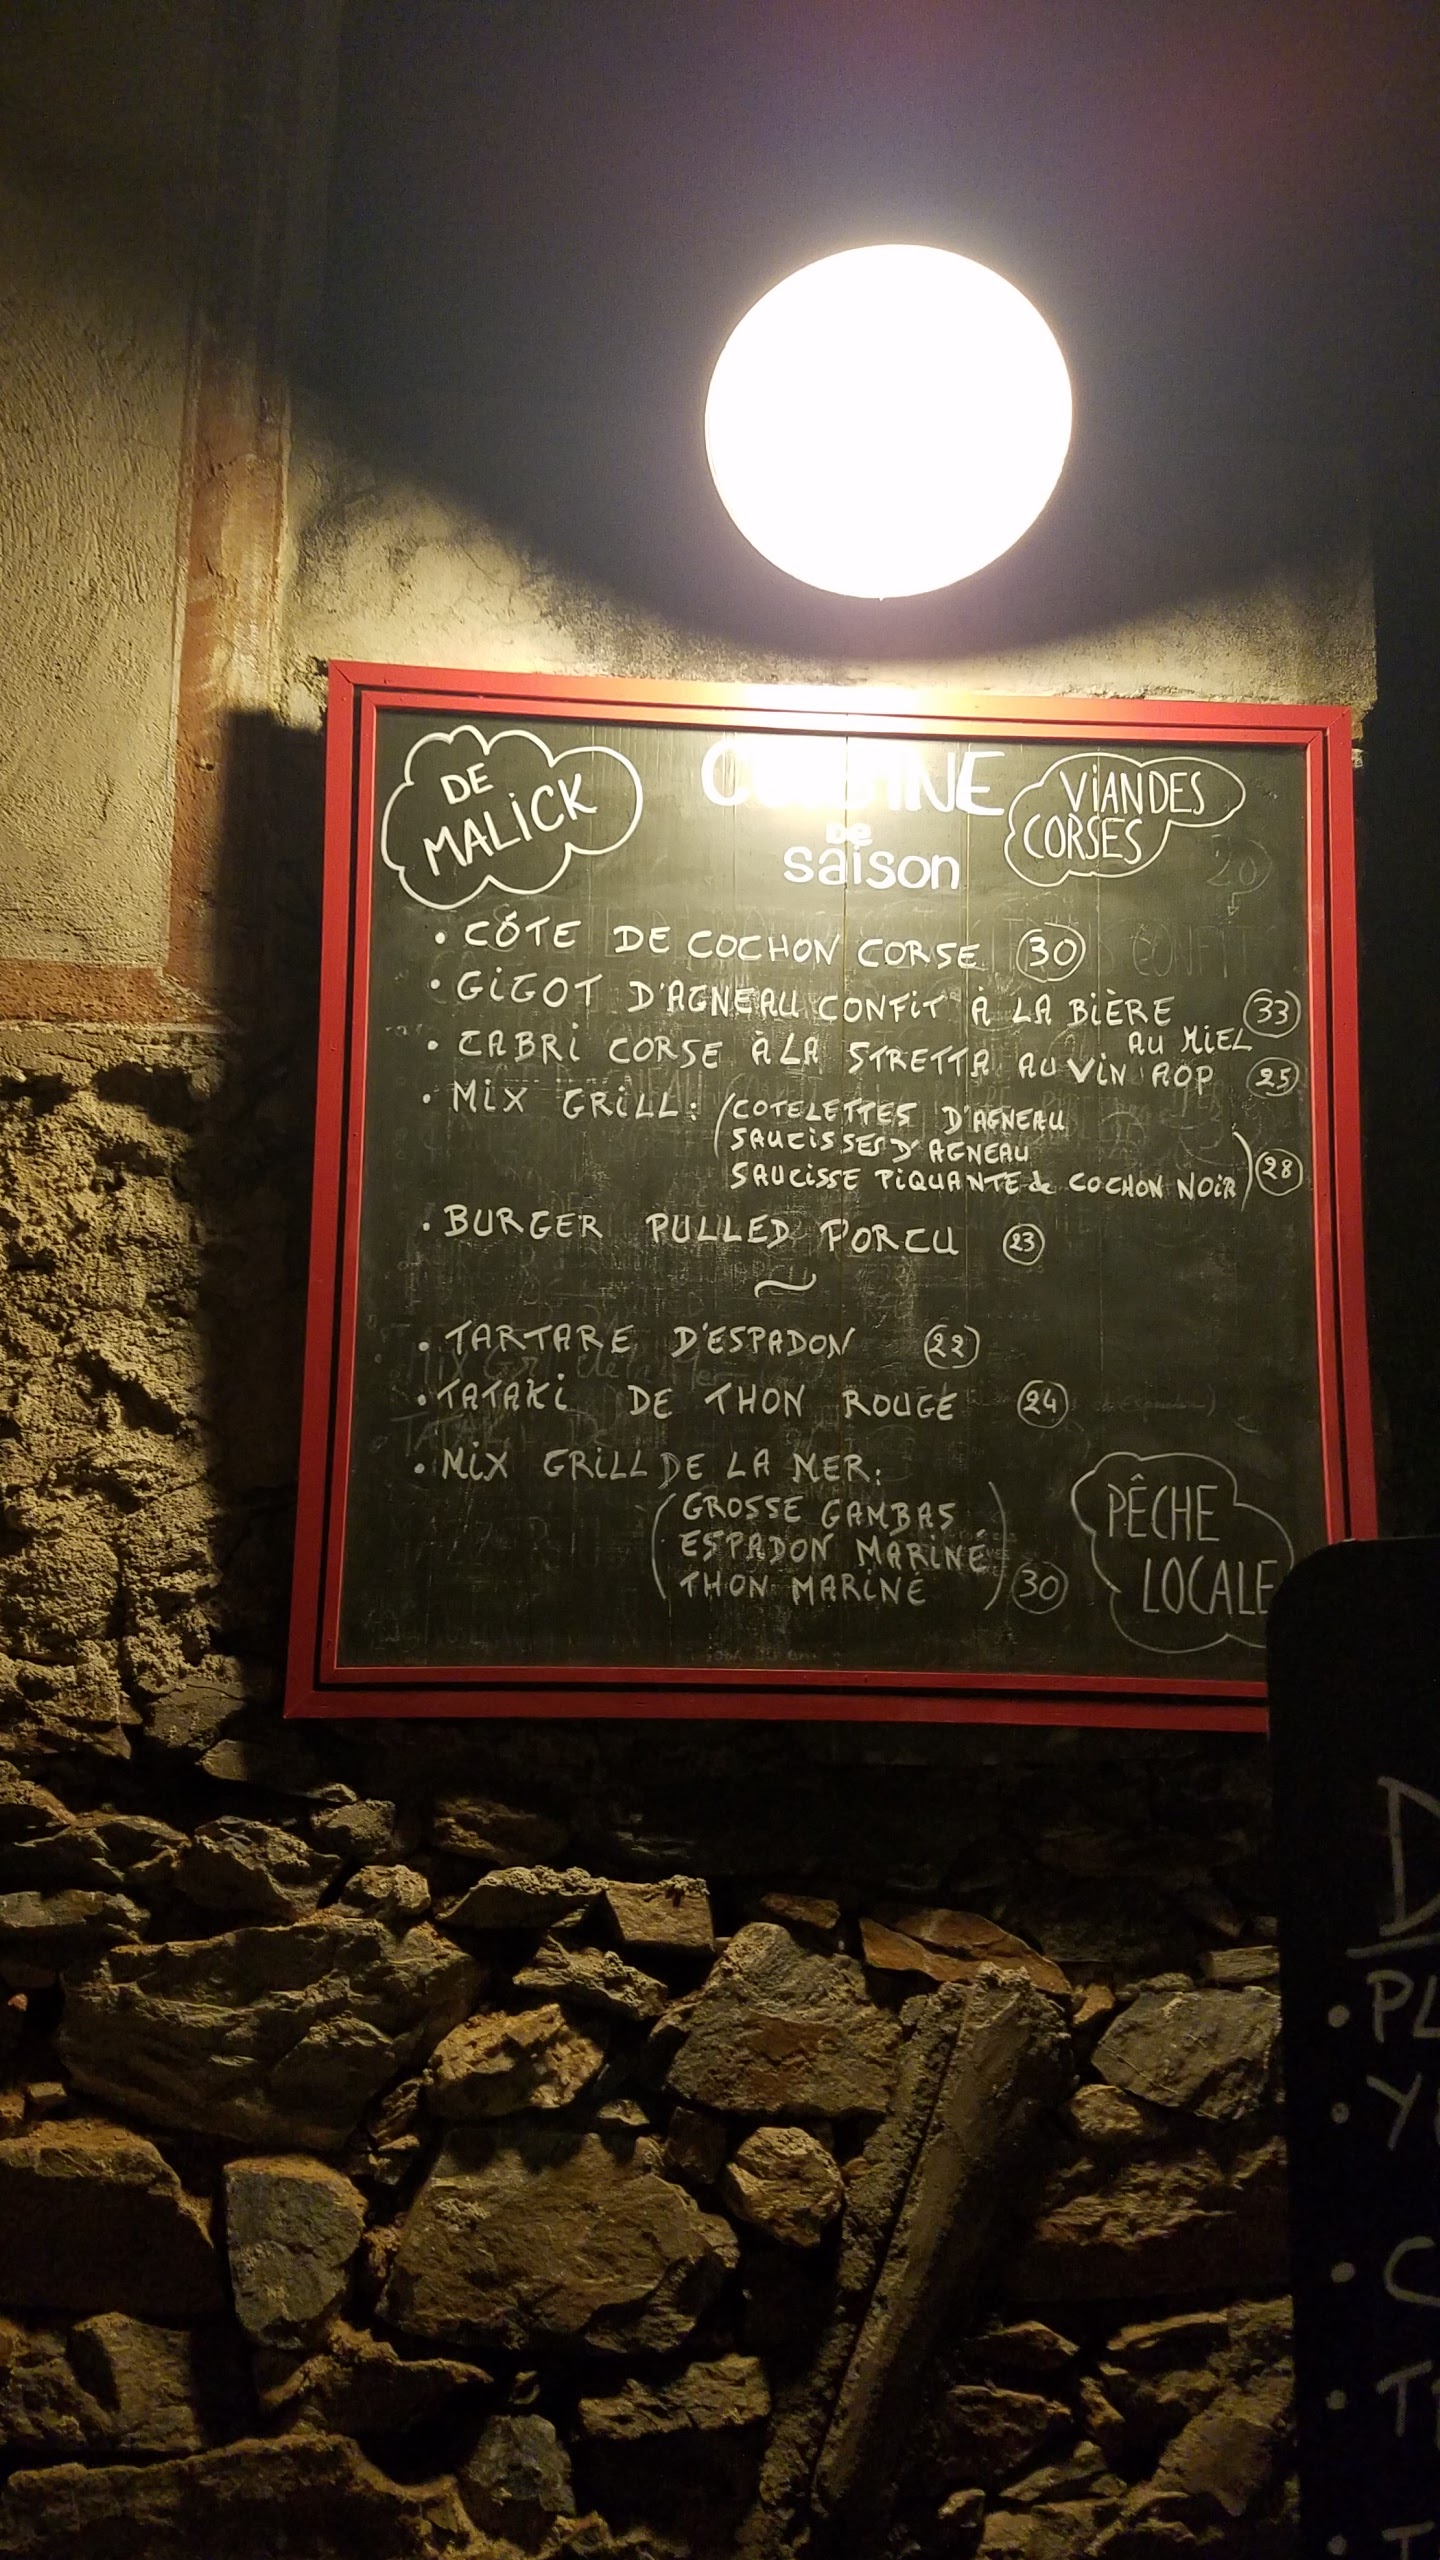 DE
MALICK
CUISINE
De
saison
VIANDES
CORSES
• CÔTE DE COCHON CORSE 30
• GIGOT D'AGNEAU CONFIT À LA BIÈRE 33
AU MIEL
• CABRI CORSE À LA STRETTA AU VIN AOP 25
• MIX GRILL: (COTELETTES D'AGNEAU
SAUCISSES D'AGNEAU
SAUCISSE PIQUANTE de COCHON NOIR) 28
• BURGER PULLED PORCU 23
~
• TARTARE D'ESPADON 22
• TATAKI DE THON ROUGE 24
• MIX GRILL DE LA MER:
(GROSSE GAMBAS
ESPADON MARINÉ
THON MARINÉ) 30
PÊCHE
LOCALE